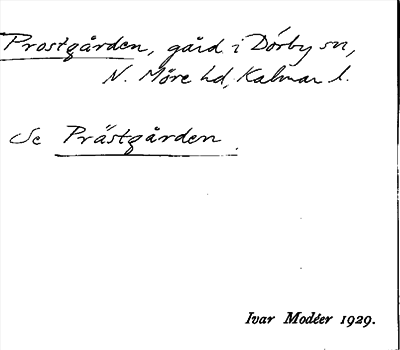 Prostgården, gård i Dörby sn,
N. Möre hd, Kalmar l.
Se Prästgården.
Ivar Modéer 1929.